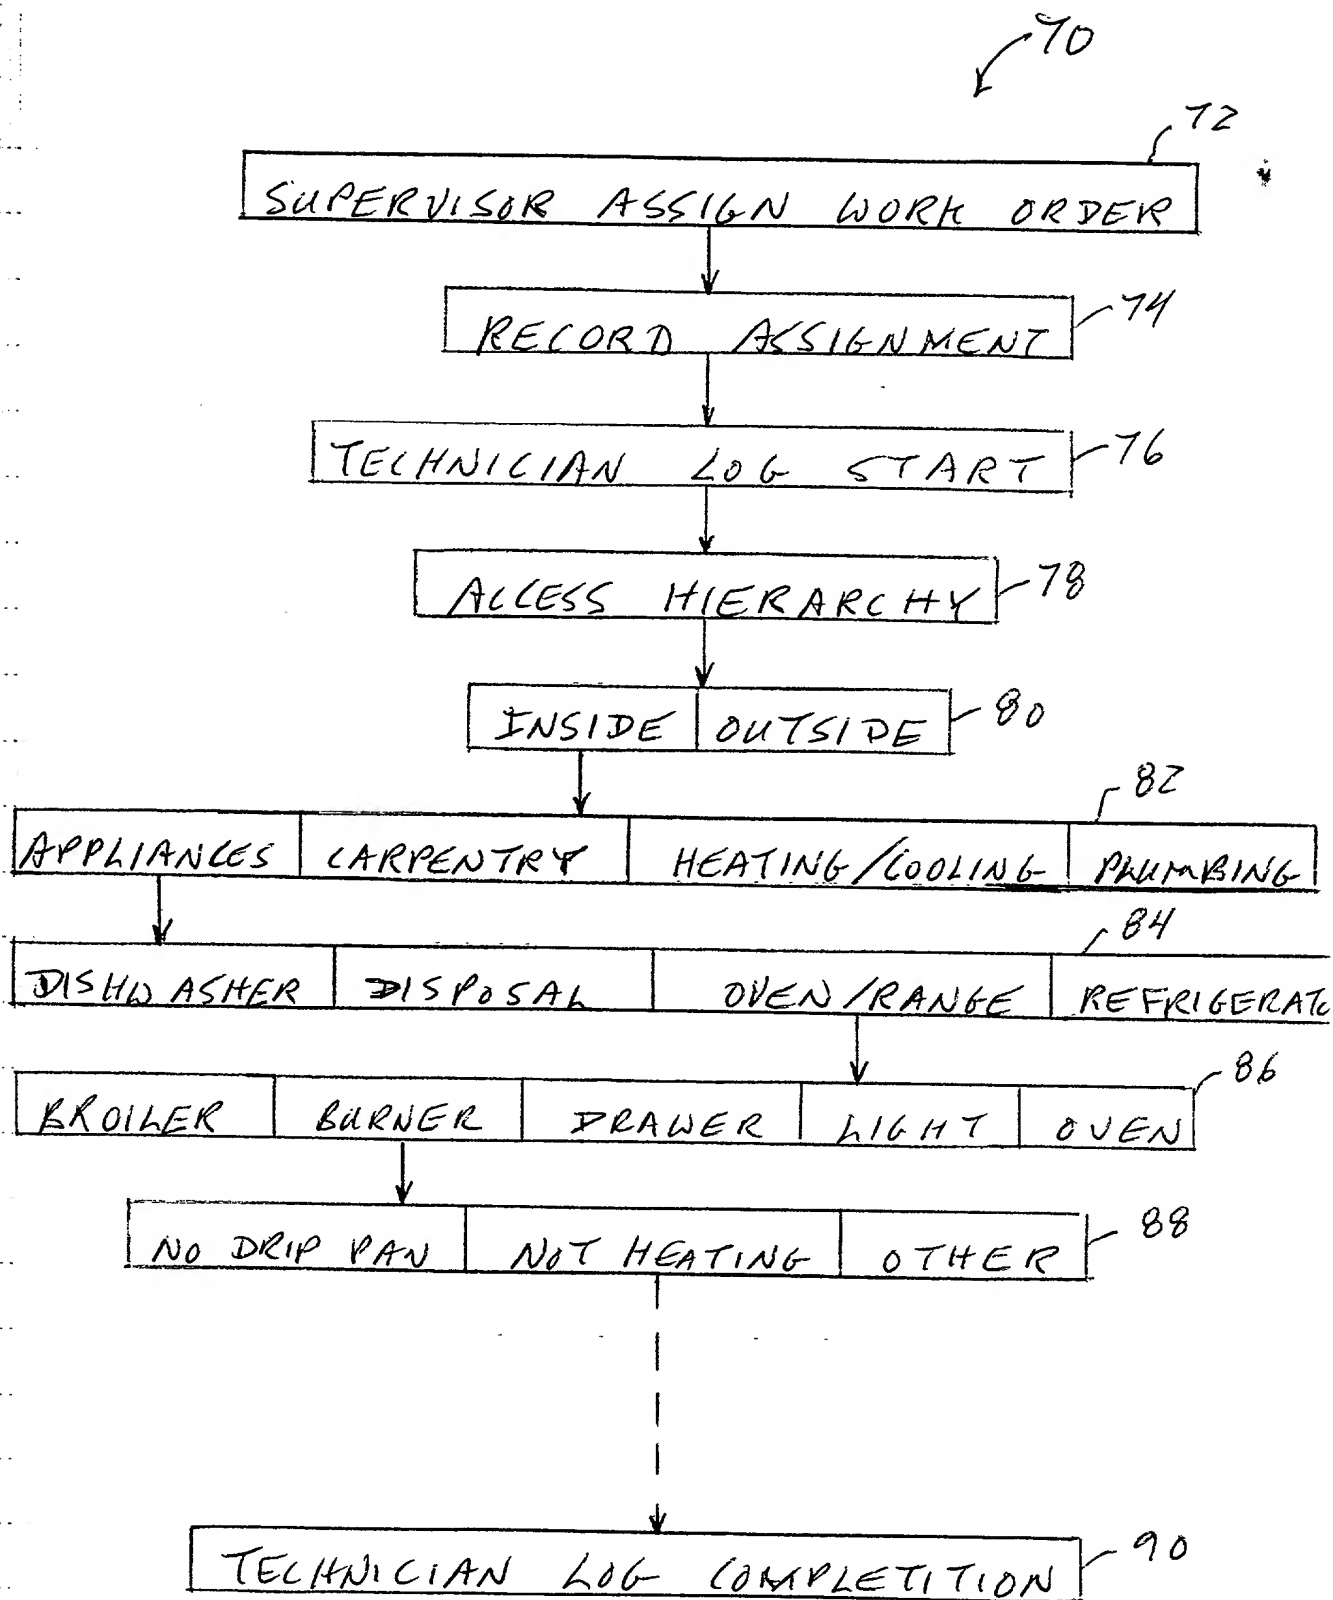 70
72
SUPERVISOR ASSIGN WORK ORDER
RECORD ASSIGNMENT 74
TECHNICIAN LOG START 76
ACCESS HIERARCHY 78
INSIDE OUTSIDE 80
82
APPLIANCES CARPENTRY HEATING/COOLING PLUMBING
84
DISHWASHER DISPOSAL OVEN/RANGE REFRIGERATO
86
BROILER BURNER DRAWER LIGHT OVEN
NO DRIP PAN NOT HEATING OTHER 88
TECHNICIAN LOG COMPLETITION 90